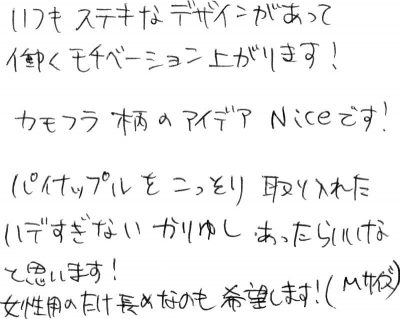 いつも ステキな デザインがあって
働く モチベーション上がります!
カモフラ 柄の アイデア Niceです!
パイナップルを こっそり 取り入れた
ハデすぎない かりゆし あったらいいな
と思います!
女性用のたけ長めなのも 希望します!(Mサイズ)